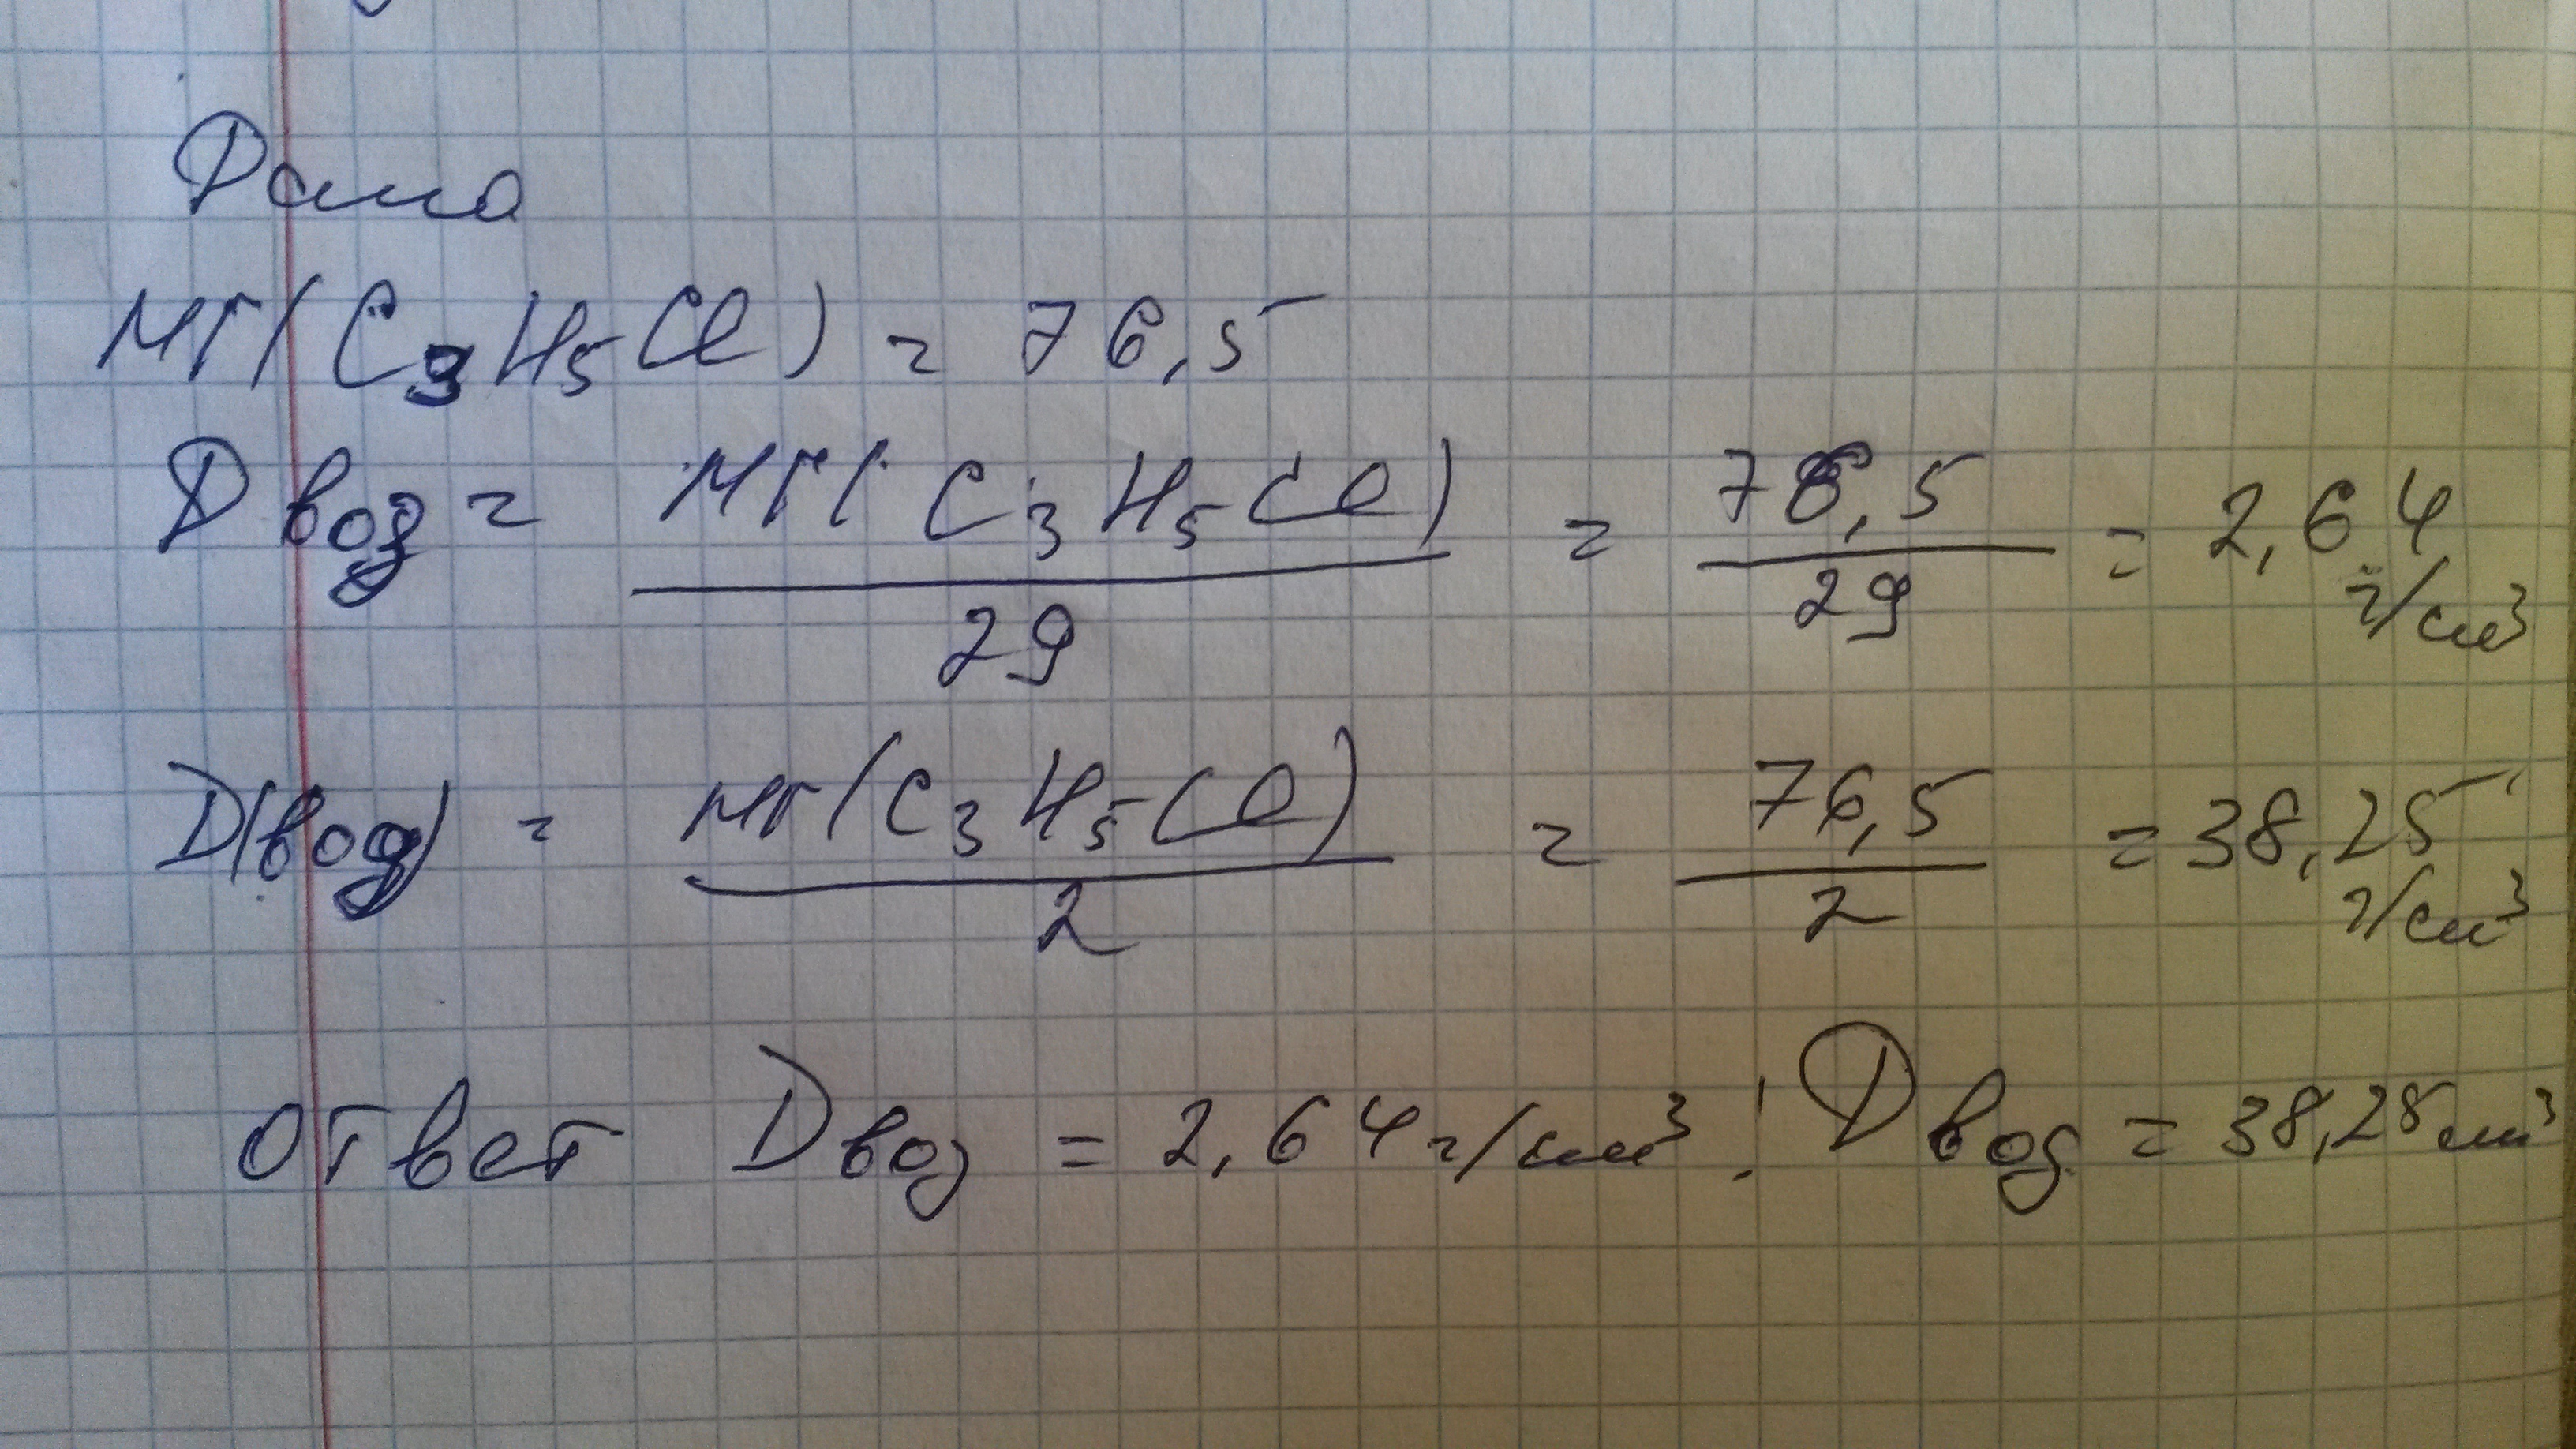 Дано
Mr(C3H5Cl) = 76,5
Dвод = Mr(C3H5Cl) / 29 = 76,5 / 29 = 2,64 г/см³
D(вод) = Mr(C3H5Cl) / 2 = 76,5 / 2 = 38,25 г/см³
Ответ Dвод = 2,64 г/см³; Dвод = 38,25 см³